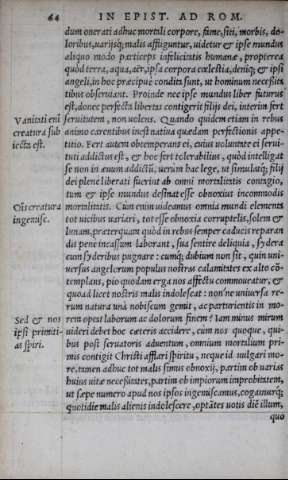 64 IN EPIST. AD ROM.
dum onerati adhuc mortali corpore, fame, siti, morbis, do-
loribus, uarijsq; malis affliguntur, uidetur & ipse mundus
aliquo modo particeps infelicitatis humanæ, propterea
quòd terra, aqua, aër, ipsa corpora cœlestia, deniq; & ipsi
angeli, in hoc præcipuè conditi sunt, ut hominum necessita
tibus obseruiant. Proinde nec ipse mundus liber futurus
est, donec perfecta libertas contigerit filijs dei, interim fert
Vanitati enĩ seruitutem, non uolens. Quando quidem etiam in rebus
creatura sub animo carentibus inest natiua quædam perfectionis appe-
iecta est. titio. Fert autem obtemperans ei, cuius uoluntate ei serui-
tuti addictus est, & hoc fert tolerabilius, quòd intelligat
se non in æuum addictũ, uerum hac lege, ut simulatq; filij
dei plenè liberati fuerint ab omni mortalitatis contagio,
tum & ipse mundus desinat esse obnoxius incommodis
mortalitatis. Cùm enim uideamus omnia mundi elementa
ingemisc. tot uicibus uariari, tot esse obnoxia corruptelis, solem &
lunam, præterquam quòd in rebus semper caducis reparan
dis penè incassum laborant, sua sentire deliquia, sydera
cum syderibus pugnare: cumq; dubium non sit, quin uni-
uersus angelorum populus nostras calamitates ex alto cõ-
templans, pio quodam erga nos affectu commoueatur, &
quoad licet nostris malis indolescat: nonne uniuersa re-
rum natura unà nobiscum gemit, ac parturientis in mo-
Sed & nos rem optat laborum ac dolorum finem? Iam minus mirum
ipsi primiti- uideri debet hoc cæteris accidere, cùm nos quoque, qui-
as spiri. bus post seruatoris aduentum, omnium mortalium pri-
mis contigit Christi afflari spiritu, neque id uulgari mo-
re, tamen adhuc tot malis simus obnoxij, partim ob uarias
huius uitæ necessitates, partim ob impiorum improbitatem,
ut sæpe numero apud nos ipsos ingemiscamus, cogamurq;
quotidie malis alienis indolescere, optãtes uotis diẽ illum,
quo